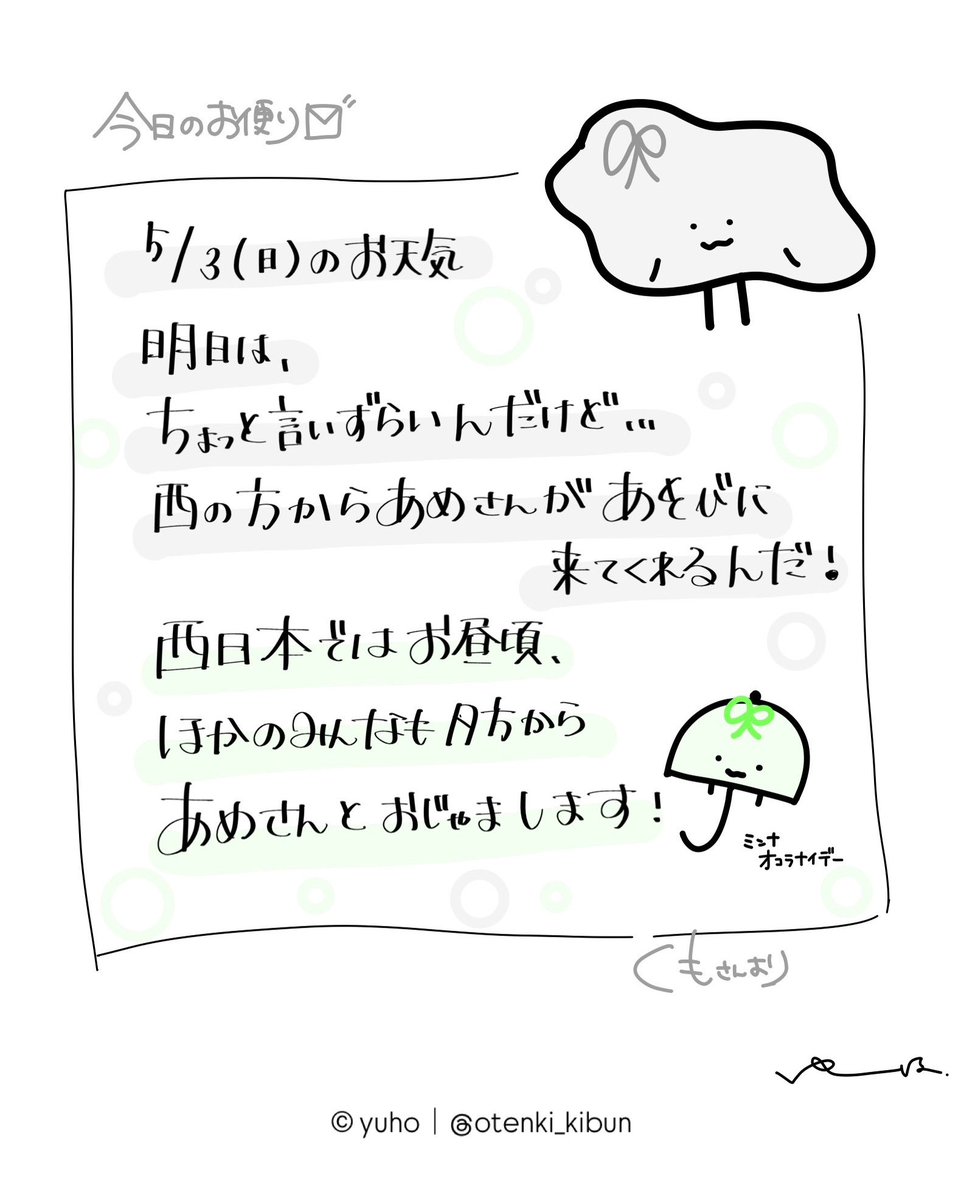 今日のお便り
5/3(日)のお天気
明日は、
ちょっと言いずらいんだけど…
西の方からあめさんがあそびに
来てくれるんだ!
西日本ではお昼頃、
ほかのみんなも夕方から
あめさんとおじゃまします!
ミンナ
オコラナイデー
くもさんより
© yuho | @otenki_kibun